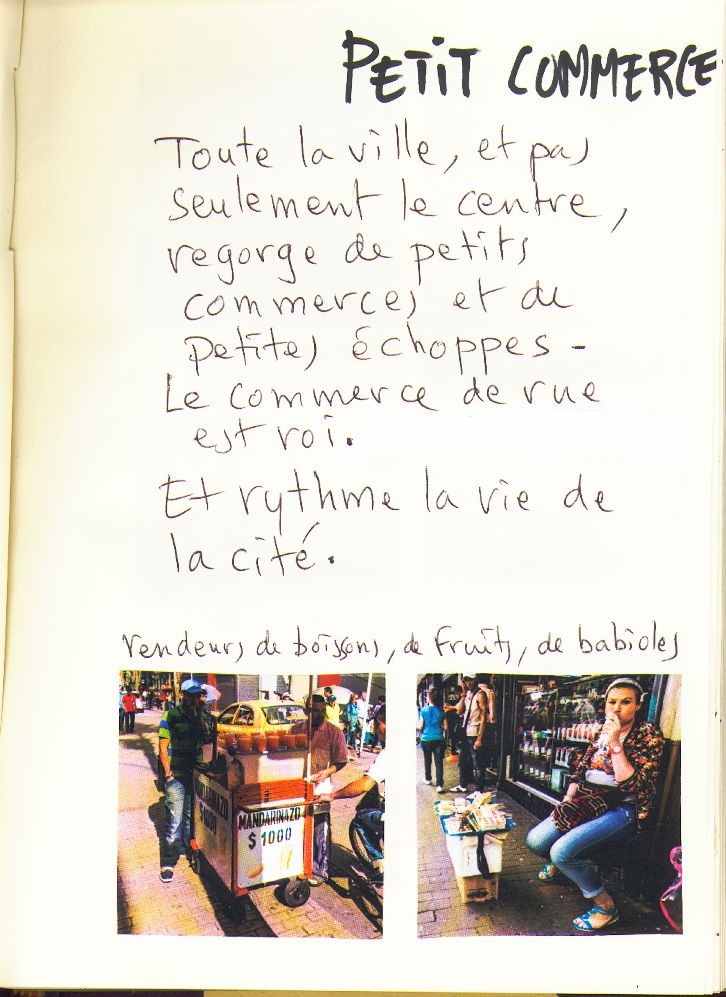 PETIT COMMERCE
Toute la ville, et pas
seulement le centre,
regorge de petits
commerces et de
petites échoppes -
Le commerce de rue
est roi.
Et rythme la vie de
la cité.
Vendeurs de boissons, de fruits, de babioles
MANDARINAZO
$1000
MANDARINAZO
$1000